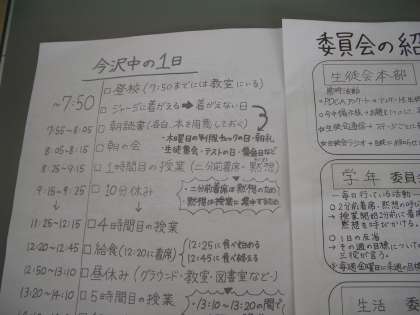 今沢中の1日
~7:50 □登校(7:50までには教室にいる)
□ジャージに着がえる➡着がえない日
7:55~8:05 □朝読書(各自、本を用意しておく)
・木曜日の制服チェックの日・朝礼
・生徒集会・テストの日・集会日など
8:05~8:15 □朝の会
8:25~9:15 □1時間目の授業(二分前着席・黙想)
9:15~9:25 □10分休み
・二分前着席は黙想のため
黙想は授業に集中するため
11:25~12:15 □4時間目の授業
12:20~12:45 □給食(12:20に着席)
12:25に食べ始める
12:45に食べ終える
12:50~13:10 □昼休み(グラウンド・教室・図書室など)
13:20~14:10 □5時間目の授業
・13:10~13:20の間で
委員会の紹
生徒会本部
学年 委員会
一毎日行っている活動一
○2分前着席、黙想の呼び
→授業開始2分前に着席
○1日の反省
→その週の目標について
生活 委